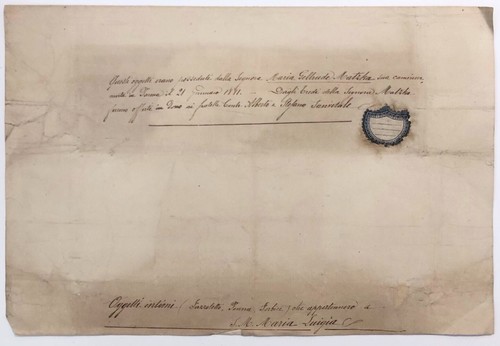 Questi oggetti erano posseduti dalla Signora Maria Geltrude Matzka sua cameriera,
morta in Parma il 21 Gennaio 1881. — Dagli Eredi della Signora Matzka
furono offerti in dono ai fratelli Conte Alberto e Stefano Sanvitale
Oggetti intimi (Parma, che appartennero a
S. M. Maria Luigia